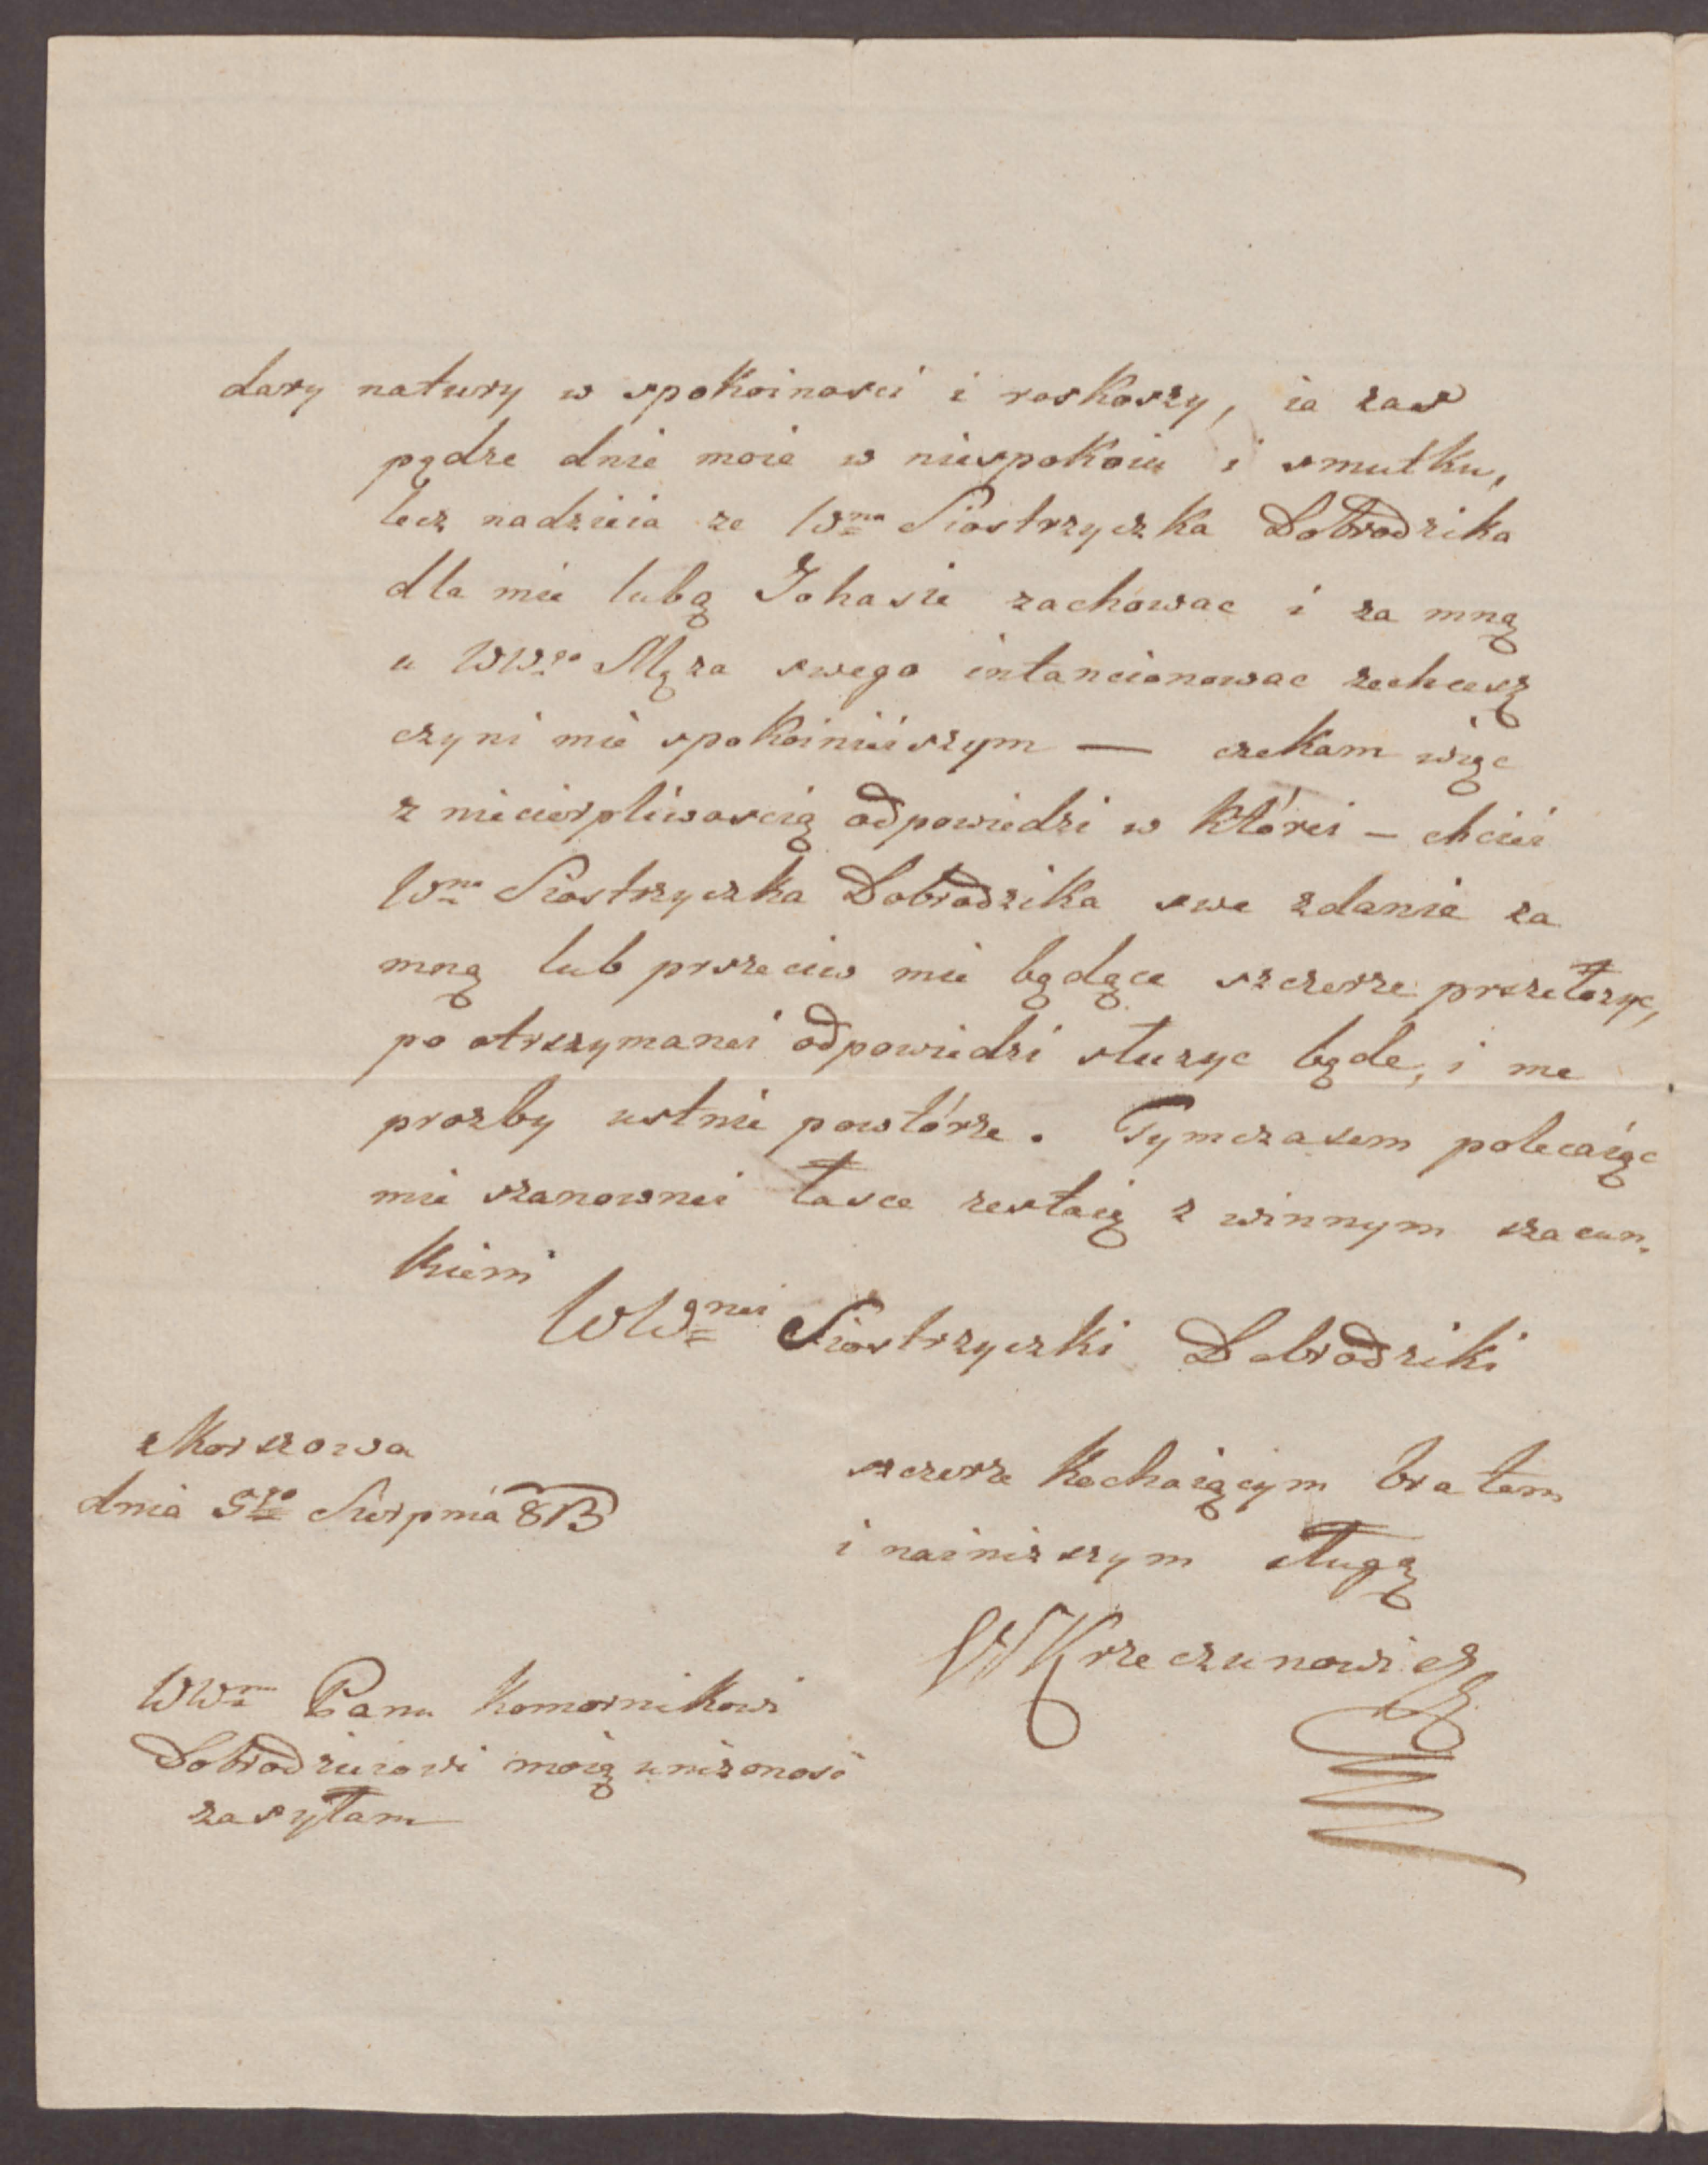 dary natury w spokoinosci i roskoszy, ia zas
pędze dnie moie w niespokoiu i smutku,
lecz nadzieia ze Wna Siostrzyczka Dobrodzika
dla mie lubą Johasie zachowac i za mną
u WWgo Męza swego intancionowac zechcesz
czyni mie spokoinieiszym — czekam więc
z niecierpliwoscią odpowiedzi w którei — chciei
Wna Siostrzyczka Dobrodzika swe zdanie za
mną lub przeciw mie będące szczerze przełozyc,
po otrzymanei odpowiedzi słuzyc będe, i me
prozby ustnie powtórze. Tymczasem polecaiąc
mie szanownei łasce zestaię z winnym szacun-
kiem
WWgnei Siostrzyczki Dobrodziki
z Korszowa
dnia 5go Sierpnia 813
szczerze kochaiącym bratem
i nainizszym sługą
WKrzeczunowicz
WWmu Panu Komornikowi
Dobrodzieiowi moię unizonosc
zasyłam